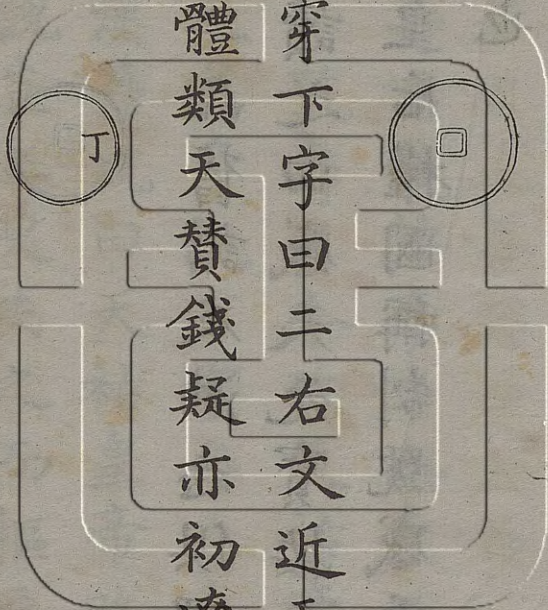 穿下字曰二右文近
體類天贊錢疑亦初
丁